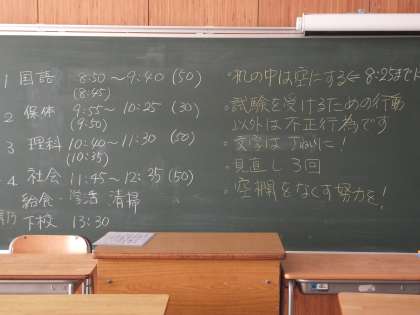 1 国語 8:50～9:40 (50)
(8:45)
2 保体 9:55～10:25 (30)
(9:50)
3 理科 10:40～11:30 (50)
(10:35)
4 社会 11:45～12:35 (50)
給食・学活 清掃
下校 13:30
・机の中は空にする⇐8:25までに
・試験を受けるための行動
以外は不正行為です
・文字は ていねいに!
・見直し 3回
・空欄をなくす努力を!